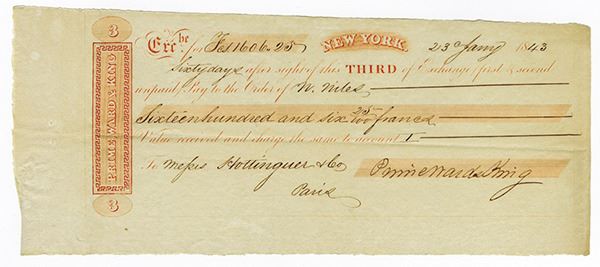 3
PRIME, WARD & KING
3
Exc^he for Fcs 1606.25 NEW YORK 23^d Jany 1843
Sixty days after sight of this THIRD of Exchange (first & second
unpaid) Pay to the Order of W. Niles
Sixteen hundred and six 25/100 francs
Value received and charge the same to account
To Messrs Hottinguer & Co Prime Ward & King
Paris